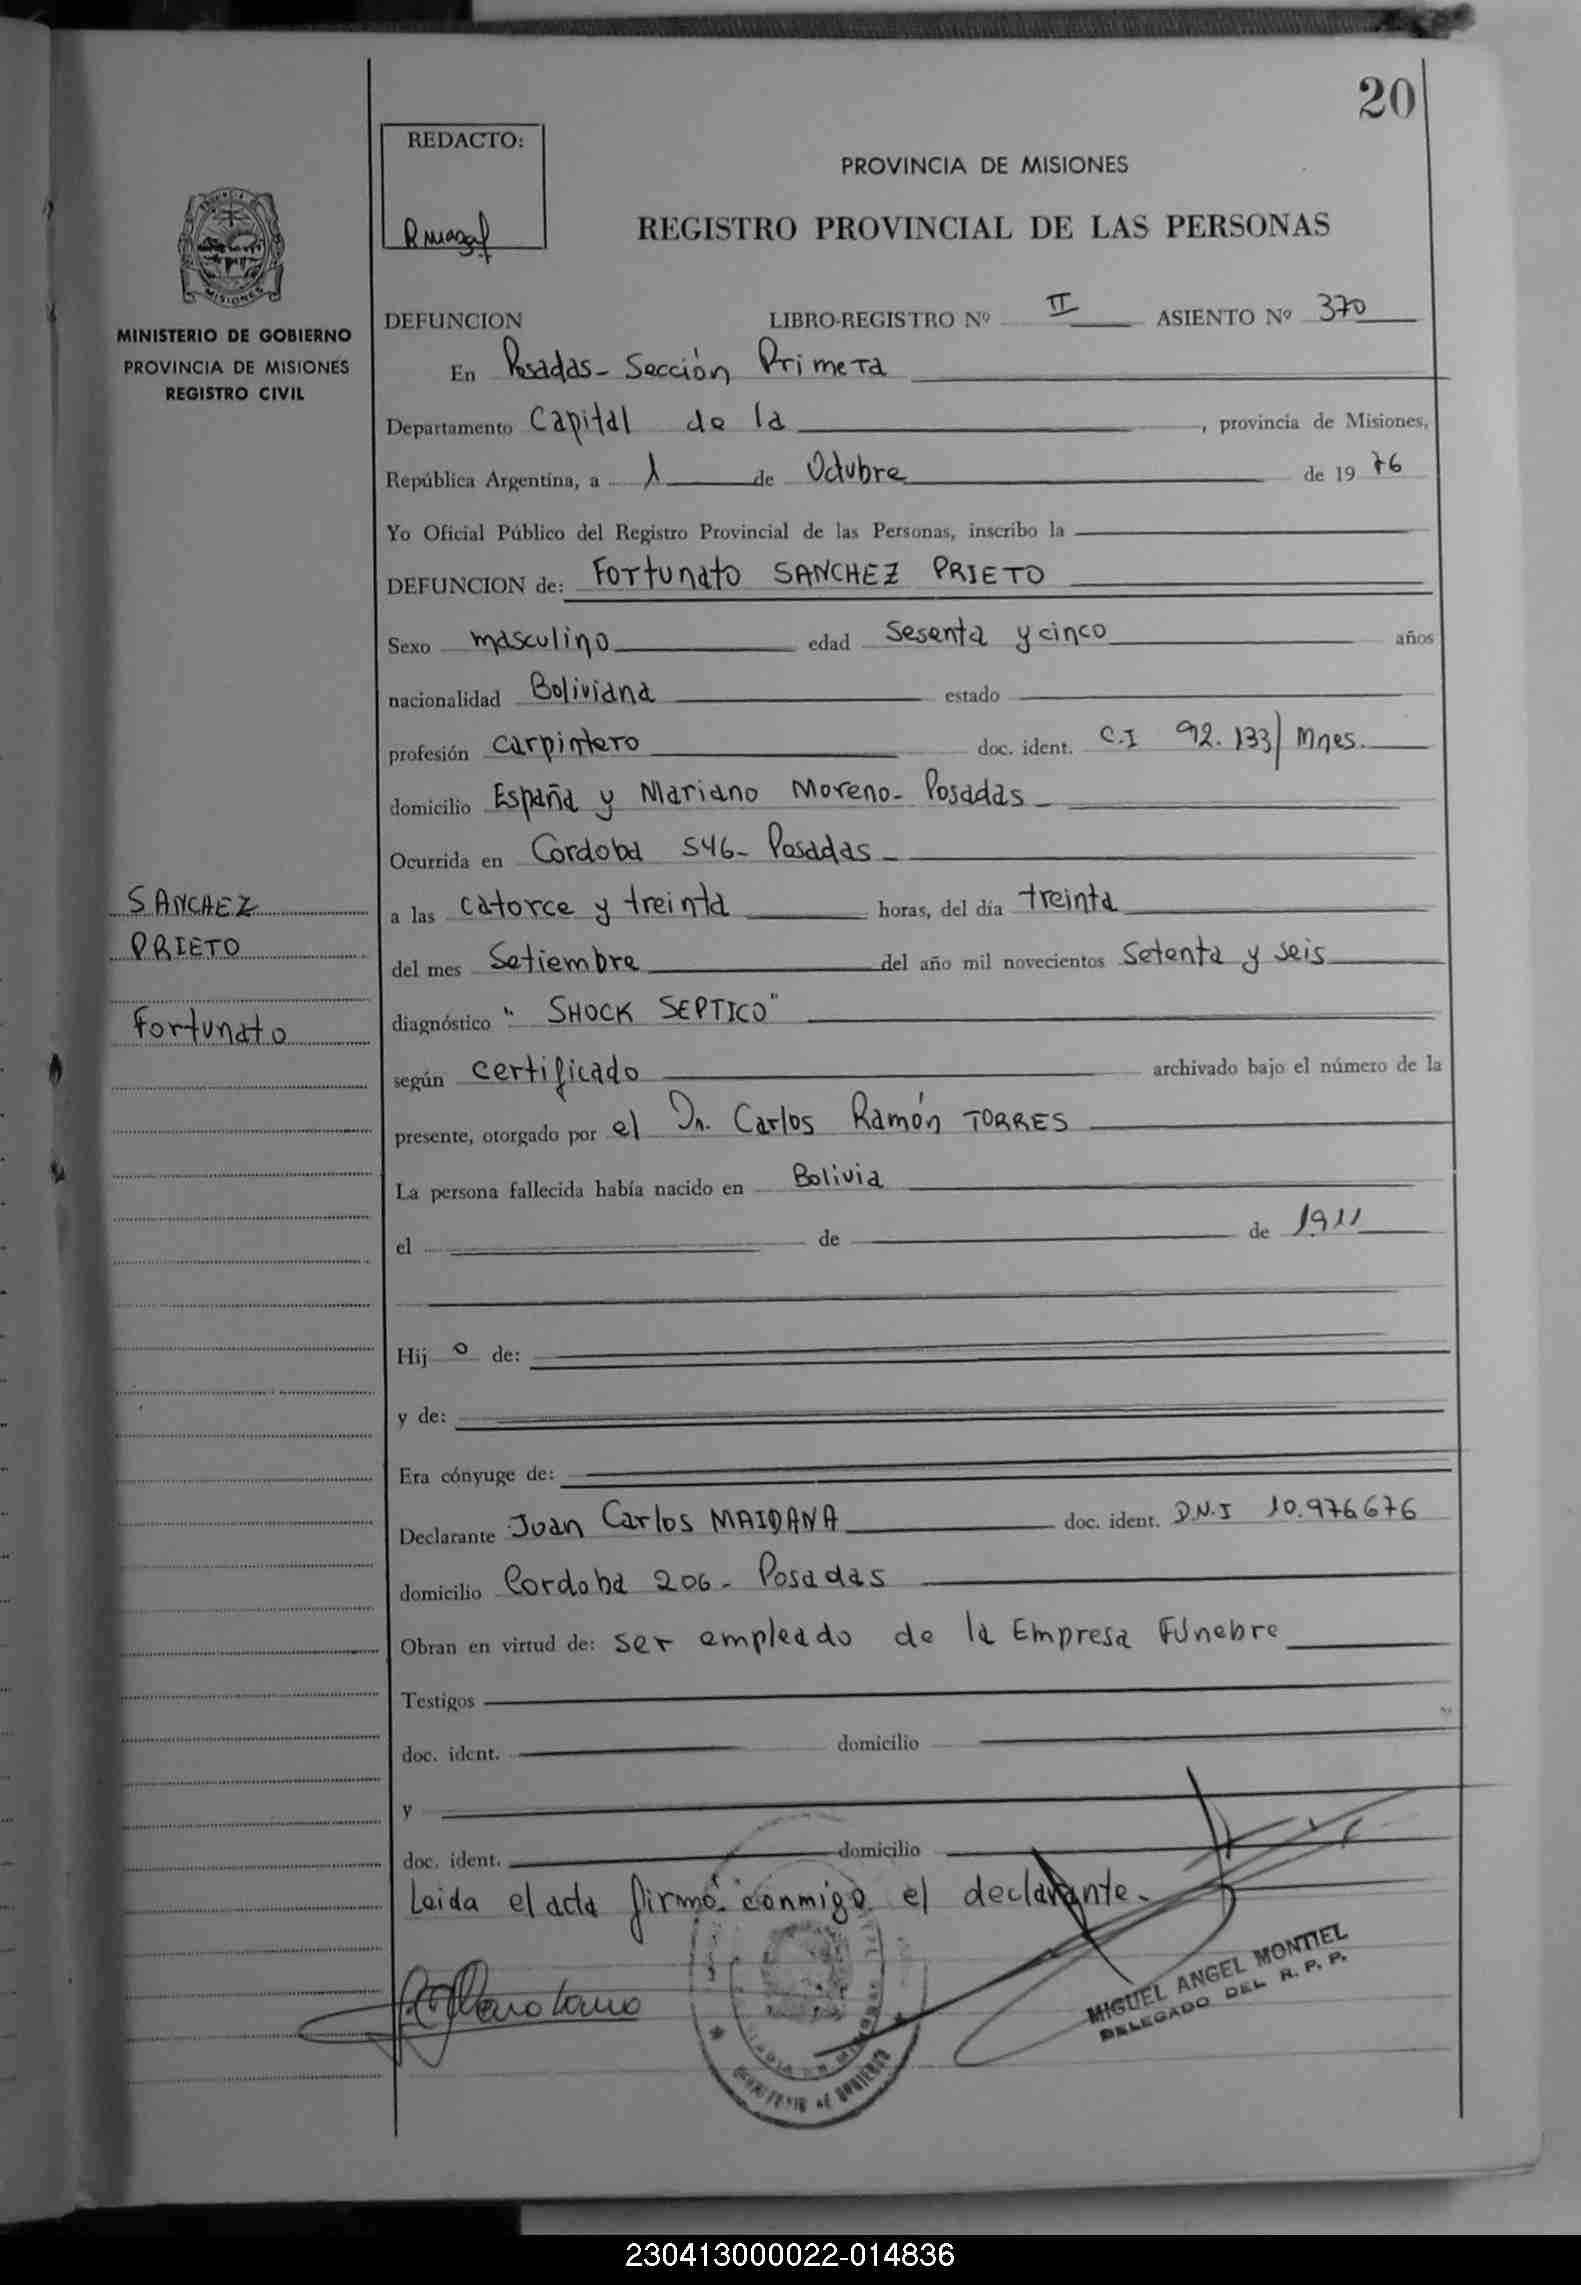 20
REDACTO:
PROVINCIA DE MISIONES
REGISTRO PROVINCIAL DE LAS PERSONAS
MISIONES
MINISTERIO DE GOBIERNO
PROVINCIA DE MISIONES
REGISTRO CIVIL
DEFUNCION LIBRO-REGISTRO Nº II ASIENTO Nº 370
En Posadas - Sección Primera
Departamento Capital de la , provincia de Misiones,
República Argentina, a 1 de Octubre de 19 76
Yo Oficial Público del Registro Provincial de las Personas, inscribo la
DEFUNCION de: Fortunato SANCHEZ PRIETO
Sexo masculino edad Sesenta y cinco años
nacionalidad Boliviana estado
profesión carpintero doc. ident. C.I 92.133/Mnes.
domicilio España y Mariano Moreno - Posadas -
Ocurrida en Cordoba 546 - Posadas -
SANCHEZ
a las catorce y treinta horas, del día treinta
PRIETO
del mes Setiembre del año mil novecientos setenta y seis
Fortunato
diagnóstico " SHOCK SEPTICO"
según certificado archivado bajo el número de la
presente, otorgado por el Dr. Carlos Ramón TORRES
La persona fallecida había nacido en Bolivia
el de de 1911
Hij o de:
y de:
Era cónyuge de:
Declarante Juan Carlos MAIDANA doc. ident. D.N.I 10.976676
domicilio Cordoba 206 - Posadas
Obran en virtud de: ser empleado de la Empresa Fúnebre
Testigos
doc. ident. domicilio
y
doc. ident. domicilio
Leida el acta firmó conmigo el declarante.
MIGUEL ANGEL MONTIEL
DELEGADO DEL R. P. P.
MINISTERIO DE GOBIERNO
230413000022-014836